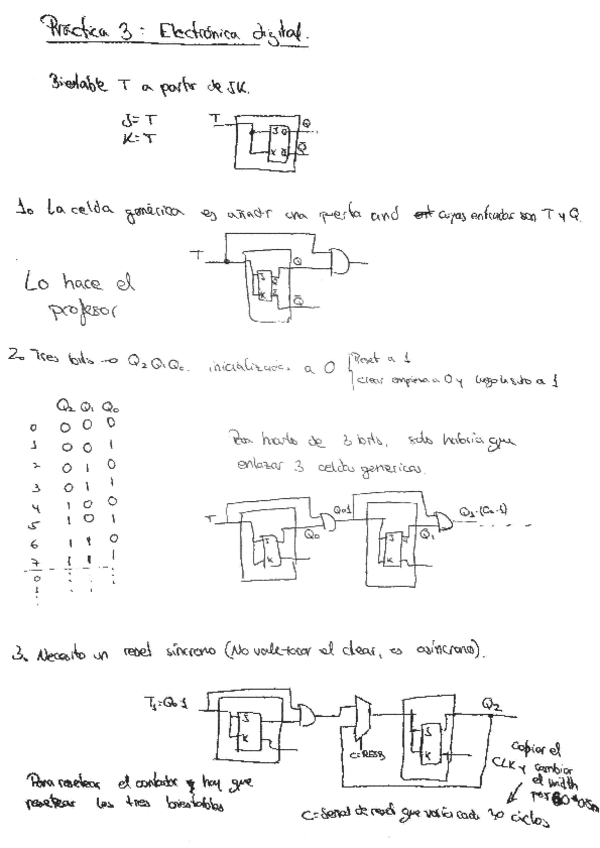 Práctica 3: Electrónica digital.
Biestable T a partir de JK.
J=T
K=T
T
J Q
K Q̅
Q
Q̅
1. La celda genérica es añadir una puerta and cuyas entradas son T y Q.
T
J
K
Q
Q̅
Lo hace el
profesor
2. Tres bits → Q2 Q1 Q0. a 0
Reset a 1
clear empieza a 0 y luego lo subo a 1
Q2 Q1 Q0
0 0 0 0
1 0 0 1
2 0 1 0
3 0 1 1
4 1 0 0
5 1 0 1
6 1 1 0
7 1 1 1
0
Para hacerlo de 3 bits, solo habría que
enlazar 3 celdas genéricas.
T
J
K
Q0
Q0·1
J
K
Q1
Q1·(Q0·1)
3. Necesito un reset síncrono (No vale tocar el clear, es asíncrono).
T1=Q0·1
J
K
C=RESET
J
K
Q2
Copiar el
CLK y cambiar
el width
por
Para resetear el contador hay que
resetear los tres biestables
C=Señal de reset que varía cada 30 ciclos